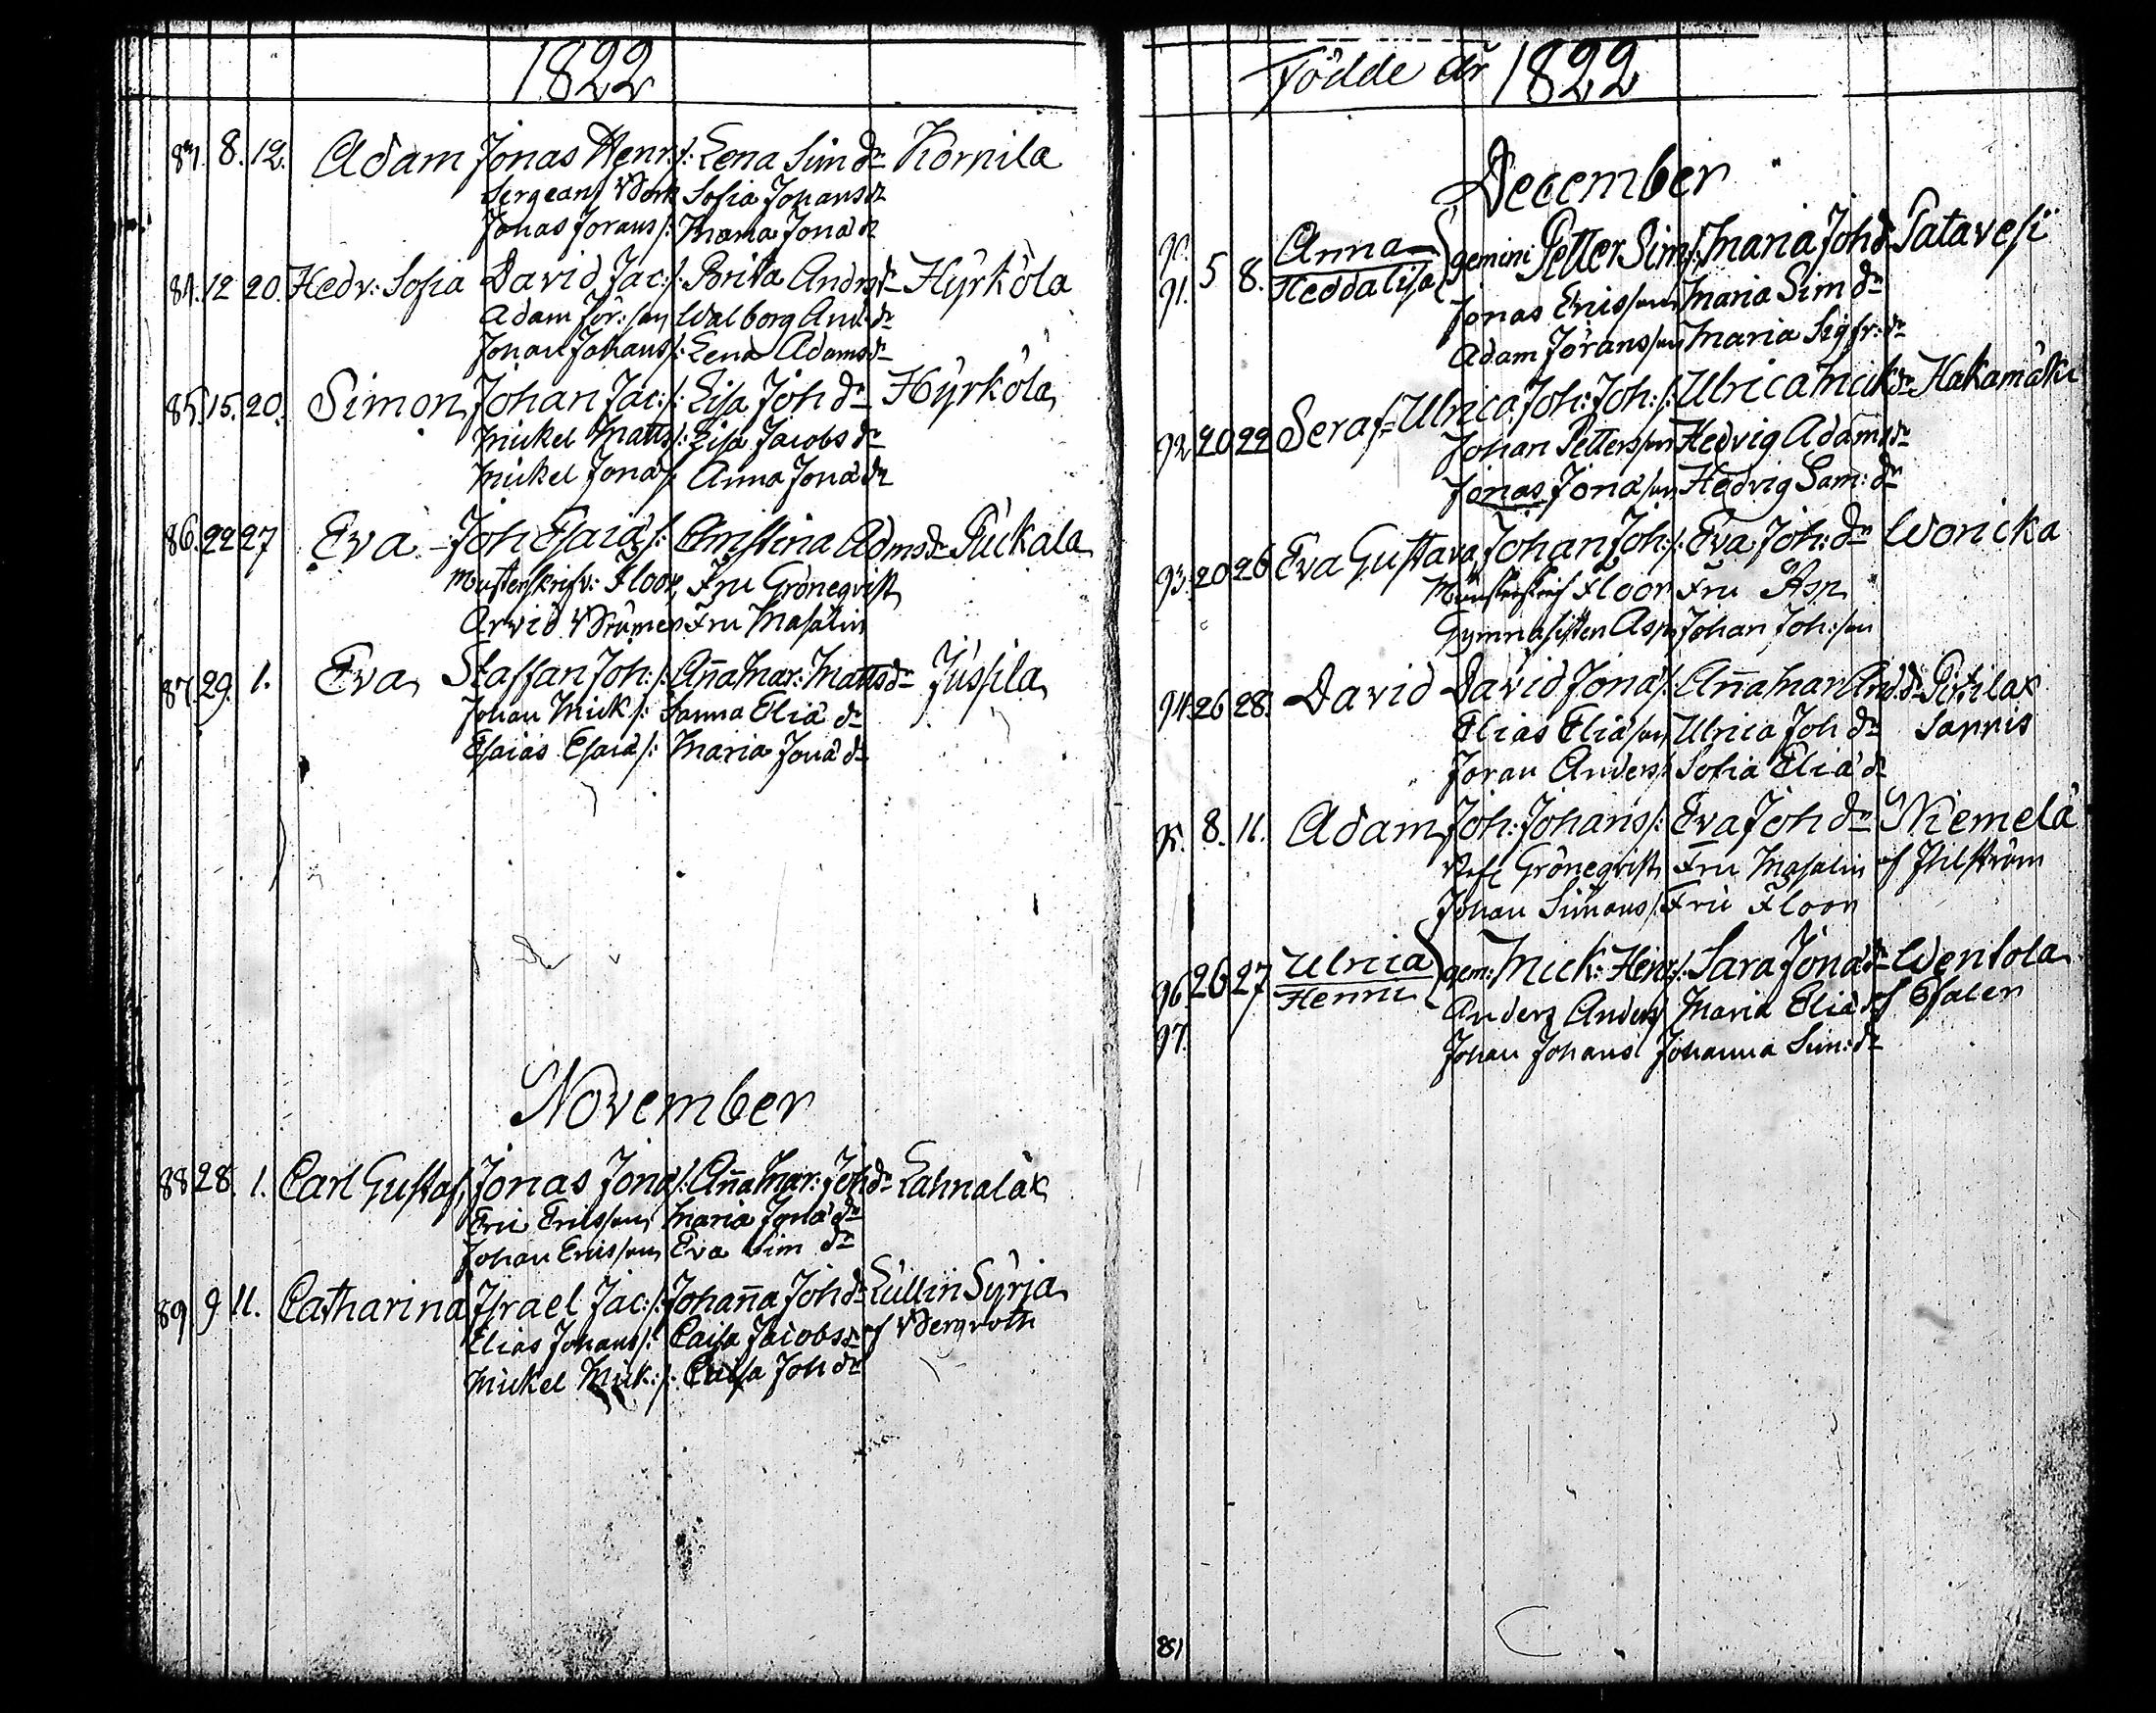 1822
83. 8. 12. Adam Jonas Henr:s: Lena Sim dr Kornila
Sergeant Sofia Johansdr
Jonas Jorans: Maria Jona dr
84. 12 20. Hedv: Sofia David Jac:s: Brita Andrsdr Hyrköla
Adam Jör:son Walborg And:dr
Johan Johans: Lena Adamsdr
85. 15. 20. Simon Johan Jac:s: Lisa Joh dr Hyrköla
Mickel Matts: Lisa Jacobsdr
Mickel Jonas: Anna Jona dr
86. 22 27 Eva Joh Esaias: Christina Admsdr Puckala
Munsterskrifv: Floor Fru Gröneqvist
Arvid Fru Masalin
87. 29. 1. Eva Staffan Joh:s: Aña Mar: Mattsdr Jussila
Johan Mick:s: Sanna Elia dr
Esaias Esaias: Maria Jona dr
November
88 28. 1. Carl Gustaf Jonas Jonas: Aña Mar: Joh dr Lahnalax
Eric Ericsson Maria Jona dr
Johan Ericsson Eva Sim dr
89. 9 11. Catharina Israel Jac:s: Johaña Joh dr Lullin Syrja
Elias Johans: Caisa Jacobsdr af Bergroth
Mickel Mick:s: Caisa Joh dr
Födde år 1822
December
90. 91. 5 8. Anna Hedda Lisa gemini Petter Sims: Maria Joh dr Patavesi
Jonas Ericsson Maria Sim dr
Adam Jöransson Maria Sigfr:dr
92 20 22 Seraf: Ulrica Joh: Joh:s: Ulrica Mickdr Hakamäki
Johan Pettersson Hedvig Adamsdr
Jonas Jonason Hedvig Sam:dr
93. 20 26 Eva Gustava Johan Joh:s: Eva Joh:dr Woricka
Munsterskrif Floor Fru Asp
Gymnasisten Asp Johan Joh:son
94. 26 28. David David Jonas: Aña Mar And:dr Pitilax
Elias Eliason Ulrica Joh dr Sannis
Joran Anderss Sofia Elia dr
95. 8. 11. Adam Joh: Johans: Eva Joh dr Niemelä
Gröneqvist Fru Masalin af
Johan Simons: Fru Floor
96. 26 27 Ulrica Henric gem: Mick: Henr:s: Sara Jona dr Wentola
97. Anders Anders Maria Elia dr af
Johan Johans Johanna Sim:dr
81